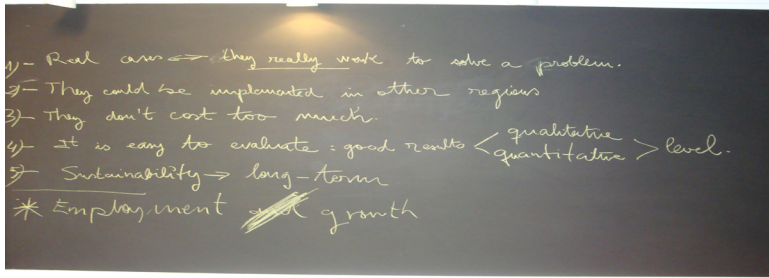 1)- Real cases <=> they really work to solve a problem.
2)- They could be implemented in other regions
3)- They don't cost too much.
4)- It is easy to evaluate : good results < qualitative quantitative > level.
5)- Sustainability → long-term
* Employment growth